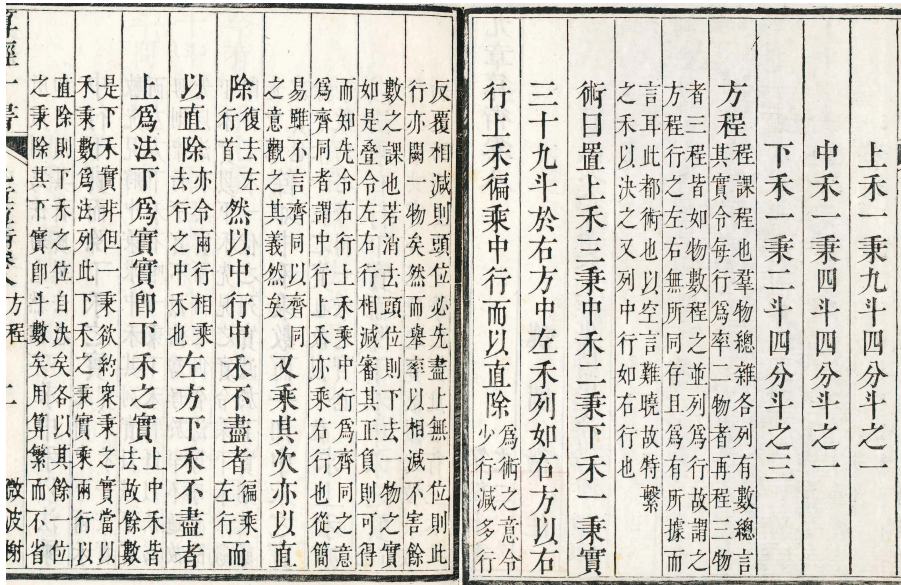 上禾一秉九斗四分斗之一
中禾一秉四斗四分斗之一
下禾一秉二斗四分斗之三
方程程課程也羣物總雜各列有數總言其實令每行爲率二物者再程三物
者三程皆如物數程之並列爲行故謂之方程行之左右無所同存且爲有所據而
言耳此都術也以空言難曉故特繫之禾以決之又列中行如右行也
術曰置上禾三秉中禾二秉下禾一秉實
三十九斗於右方中左禾列如右方以右
行上禾徧乘中行而以直除爲術之意令少行減多行
反覆相減則頭位必先盡上無一位則此行亦闕一物矣然而舉率以相減不害餘
數之課也若消去頭位則下去一物之實如是疊令左右行相減審其正負則可得
而如先令右行上禾乘中行爲齊同之意爲齊同者謂中行上禾亦乘右行也從簡
易雖不言齊同以齊同之意觀之其義然矣又乘其次亦以直
除復去左行首然以中行中禾不盡者徧乘左行而
以直除亦令兩行相乘去行之中禾也左方下禾不盡者
上爲法下爲實實卽下禾之實上中禾皆去故餘數
是下禾實非但一秉欲約衆秉之實當以禾秉數爲法列此下禾之秉實乘兩行以
直除則下禾之位自決矣各以其餘一位之秉除其下實卽斗數矣用算繁而不省
算經十書 九章算術卷八 方程 二 微波榭